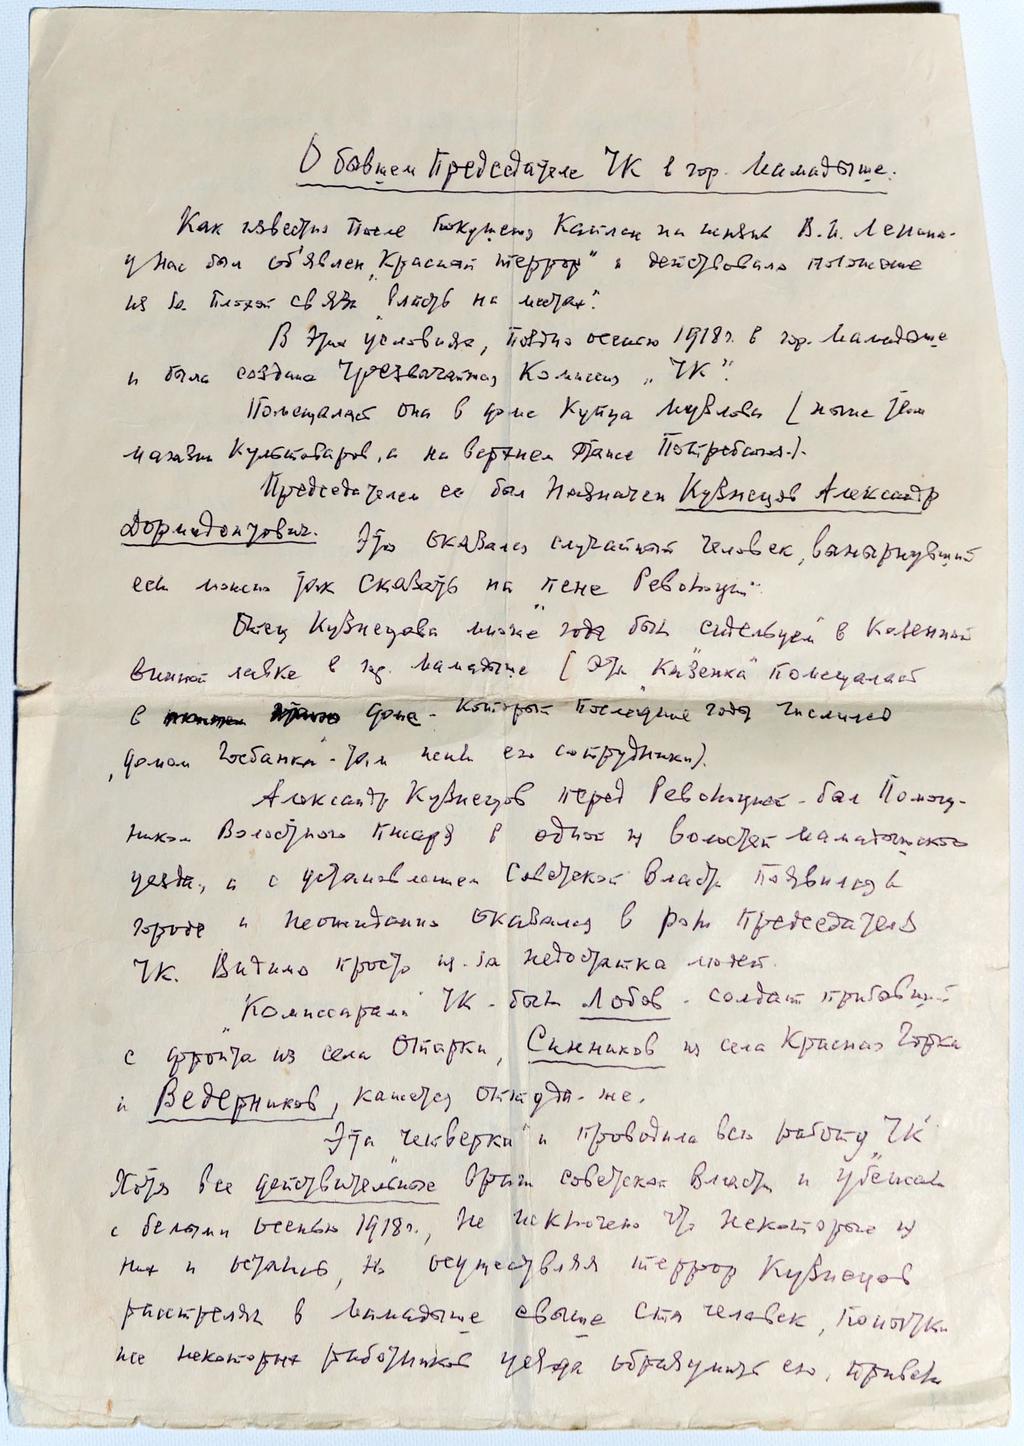 О бывшем Председателе ЧК в гор. Мамадыше.
Как известно после покушения Каплан на жизнь В.И. Ленина-
у нас был об'явлен "Красный террор" и действовало положение
из за плохой связи "власть на местах".
В этих условиях, поздно осенью 1918г. в гор. Мамадыше
и была создана Чрезвычайная Комиссия "ЧК".
Помещалась она в доме Купца (ныне там
магазин Культоваров, а на верхнем этаже Потребсоюз).
Председателем ее был назначен Кузнецов Александр
Дормидонтович. Это оказался случайный человек, вынырнувший
если можно так сказать на "пене Революции"
Отец Кузнецова многие года был "сидельцем" в Казенной
винной лавке в гор. Мамадыше (эта "Казенка" помещалась
в доме - который последние года числился
"домом Госбанка" - там жили его сотрудники).
Александр Кузнецов перед Революцией - был Помощ-
ником Волостного писаря в одной из волостей Мамадышского
уезда, и с установлением Советской власти появился в
городе и неожиданно оказался в роли Председателя
ЧК. Видимо просто из-за недостатка людей.
"Комиссарами" ЧК - были Лобов - солдат прибывший
с фронта из села Отарки, Санников из села Красная Горка
и Ведерников, кажется оттуда-же.
Эта "четверка" и проводила всю работу ЧК
Хотя все действительные враги советской власти и убежали
с белыми осенью 1918г., не исключено что некоторые из
них и остались, но осуществляя террор Кузнецов
расстрелял в Мамадыше свыше ста человек, попытки
же некоторых работников уезда образумить его, привели